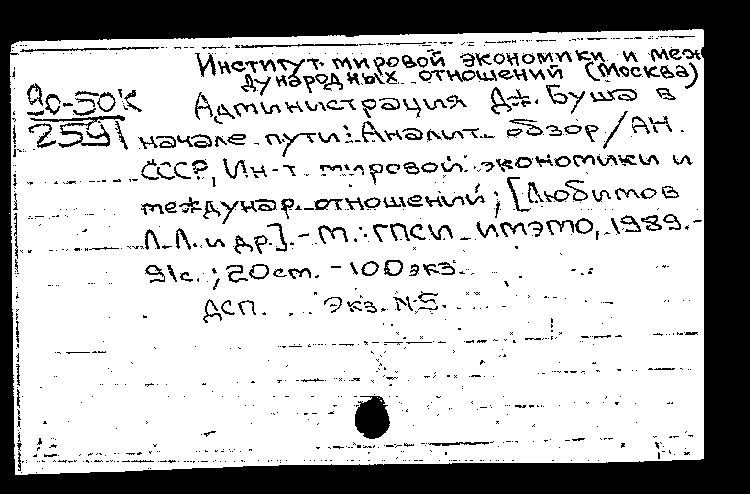 Институт мировой экономики и меж
дународных отношений (Москва)
90-50К
2591
Администрация Дж. Буша в
начале пути: Аналит. обзор / АН
СССР, Ин-т мировой экономики и
междунар. отношений; [Любимов
Л.Л. и др.]. - М.: ГПСИ ИМЭМО, 1989. -
91с.; 20см. - 100экз.
ДСП. Экз. N5.